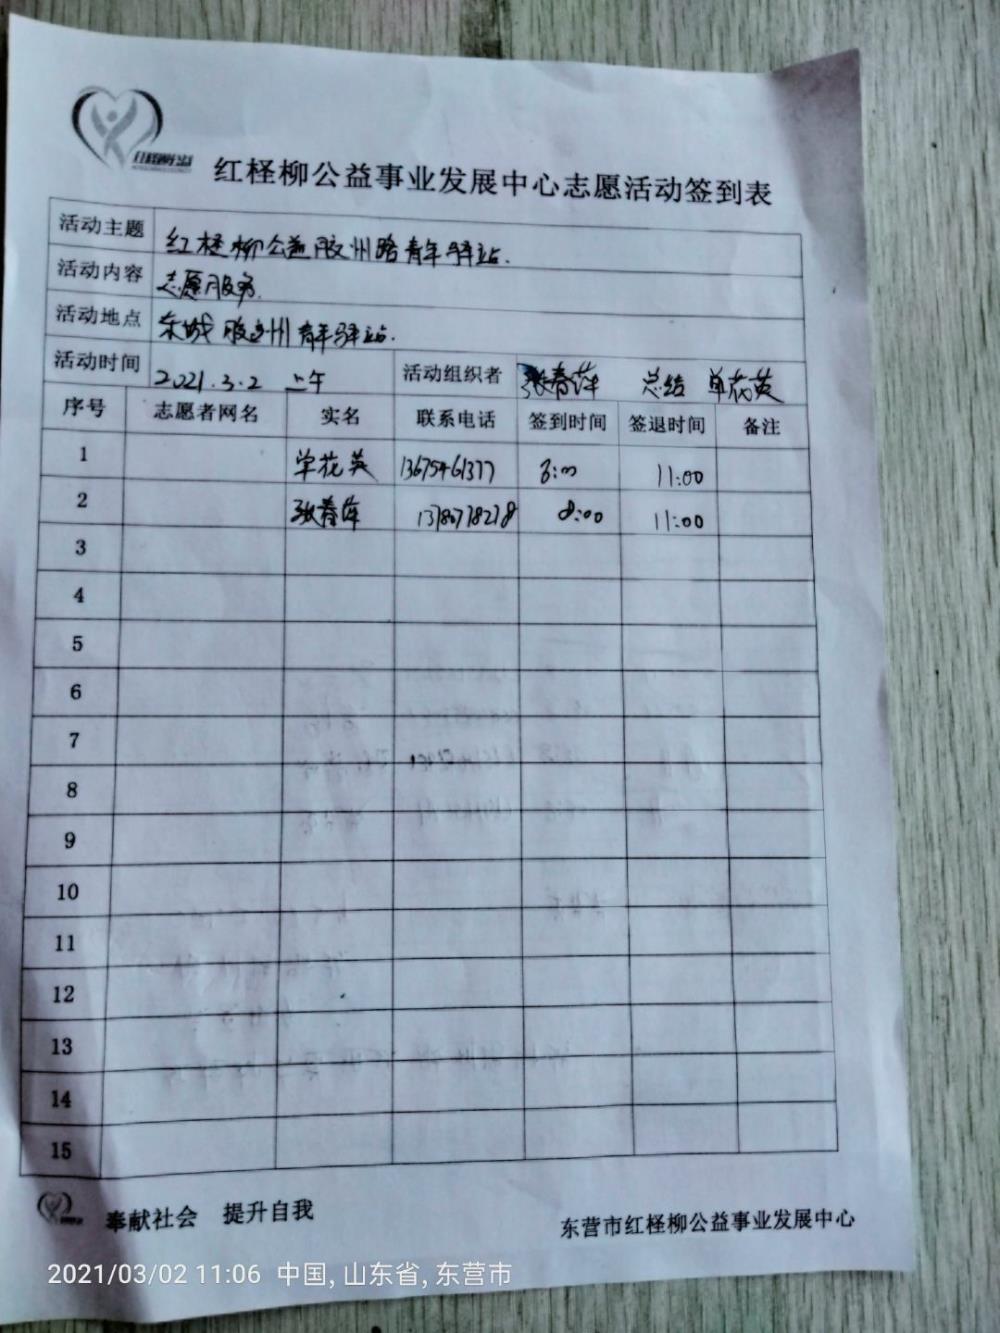 红柽柳公益事业发展中心志愿活动签到表
活动主题 红柽柳公益胶州路青年驿站.
活动内容 志愿服务.
活动地点 东城 胶州 青年驿站.
活动时间 2021.3.2 上午 活动组织者 张春萍 总结 单花英
序号 志愿者网名 实名 联系电话 签到时间 签退时间 备注
1 单花英 13675461377 11:00
2 张春萍 8:00 11:00
3
4
5
6
7
8
9
10
11
12
13
14
15
奉献社会 提升自我 东营市红柽柳公益事业发展中心
2021/03/02 11:06 中国, 山东省, 东营市